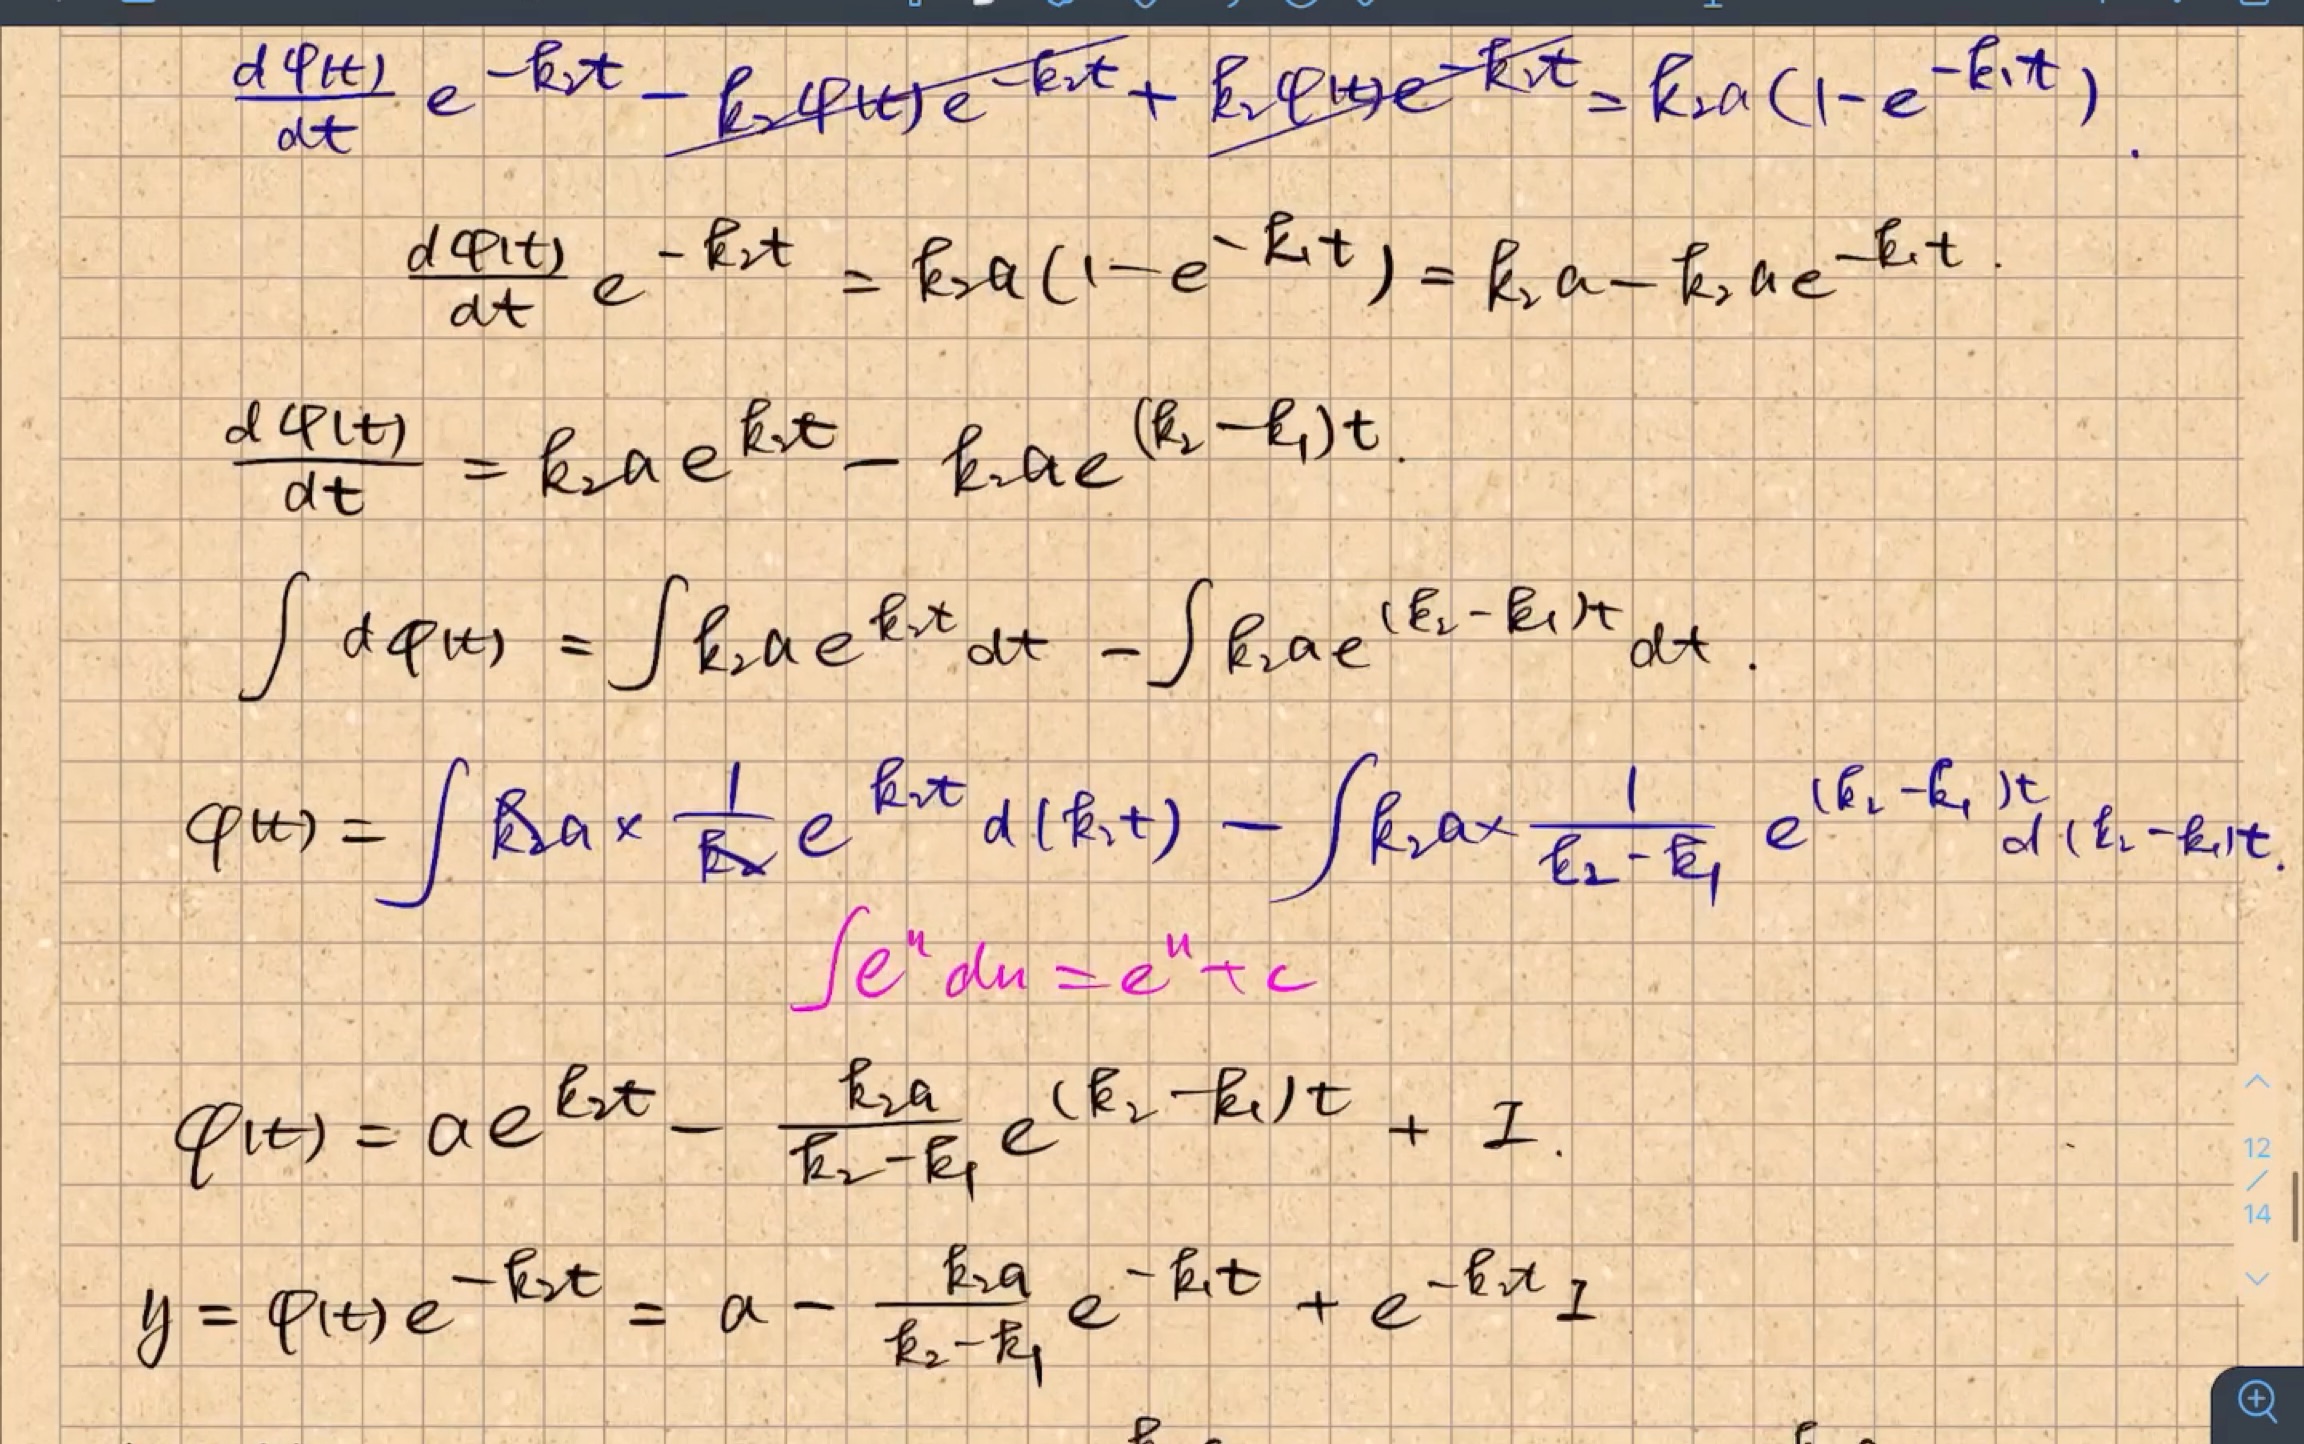 dφ(t)/dt e^{-k₂t} - k₂φ(t)e^{-k₂t} + k₂φ(t)e^{-k₂t} = k₂a(1-e^{-k₁t}).
dφ(t)/dt e^{-k₂t} = k₂a(1-e^{-k₁t}) = k₂a - k₂ae^{-k₁t}.
dφ(t)/dt = k₂ae^{k₂t} - k₂ae^{(k₂-k₁)t}.
∫dφ(t) = ∫k₂ae^{k₂t}dt - ∫k₂ae^{(k₂-k₁)t}dt.
φ(t) = ∫k₂a × 1/k₂ e^{k₂t} d(k₂t) - ∫k₂a × 1/(k₂-k₁) e^{(k₂-k₁)t} d(k₂-k₁)t.
∫e^u du = e^u + c
φ(t) = ae^{k₂t} - k₂a/(k₂-k₁) e^{(k₂-k₁)t} + I.
y = φ(t)e^{-k₂t} = a - k₂a/(k₂-k₁) e^{-k₁t} + e^{-k₂t} I
12
/
14